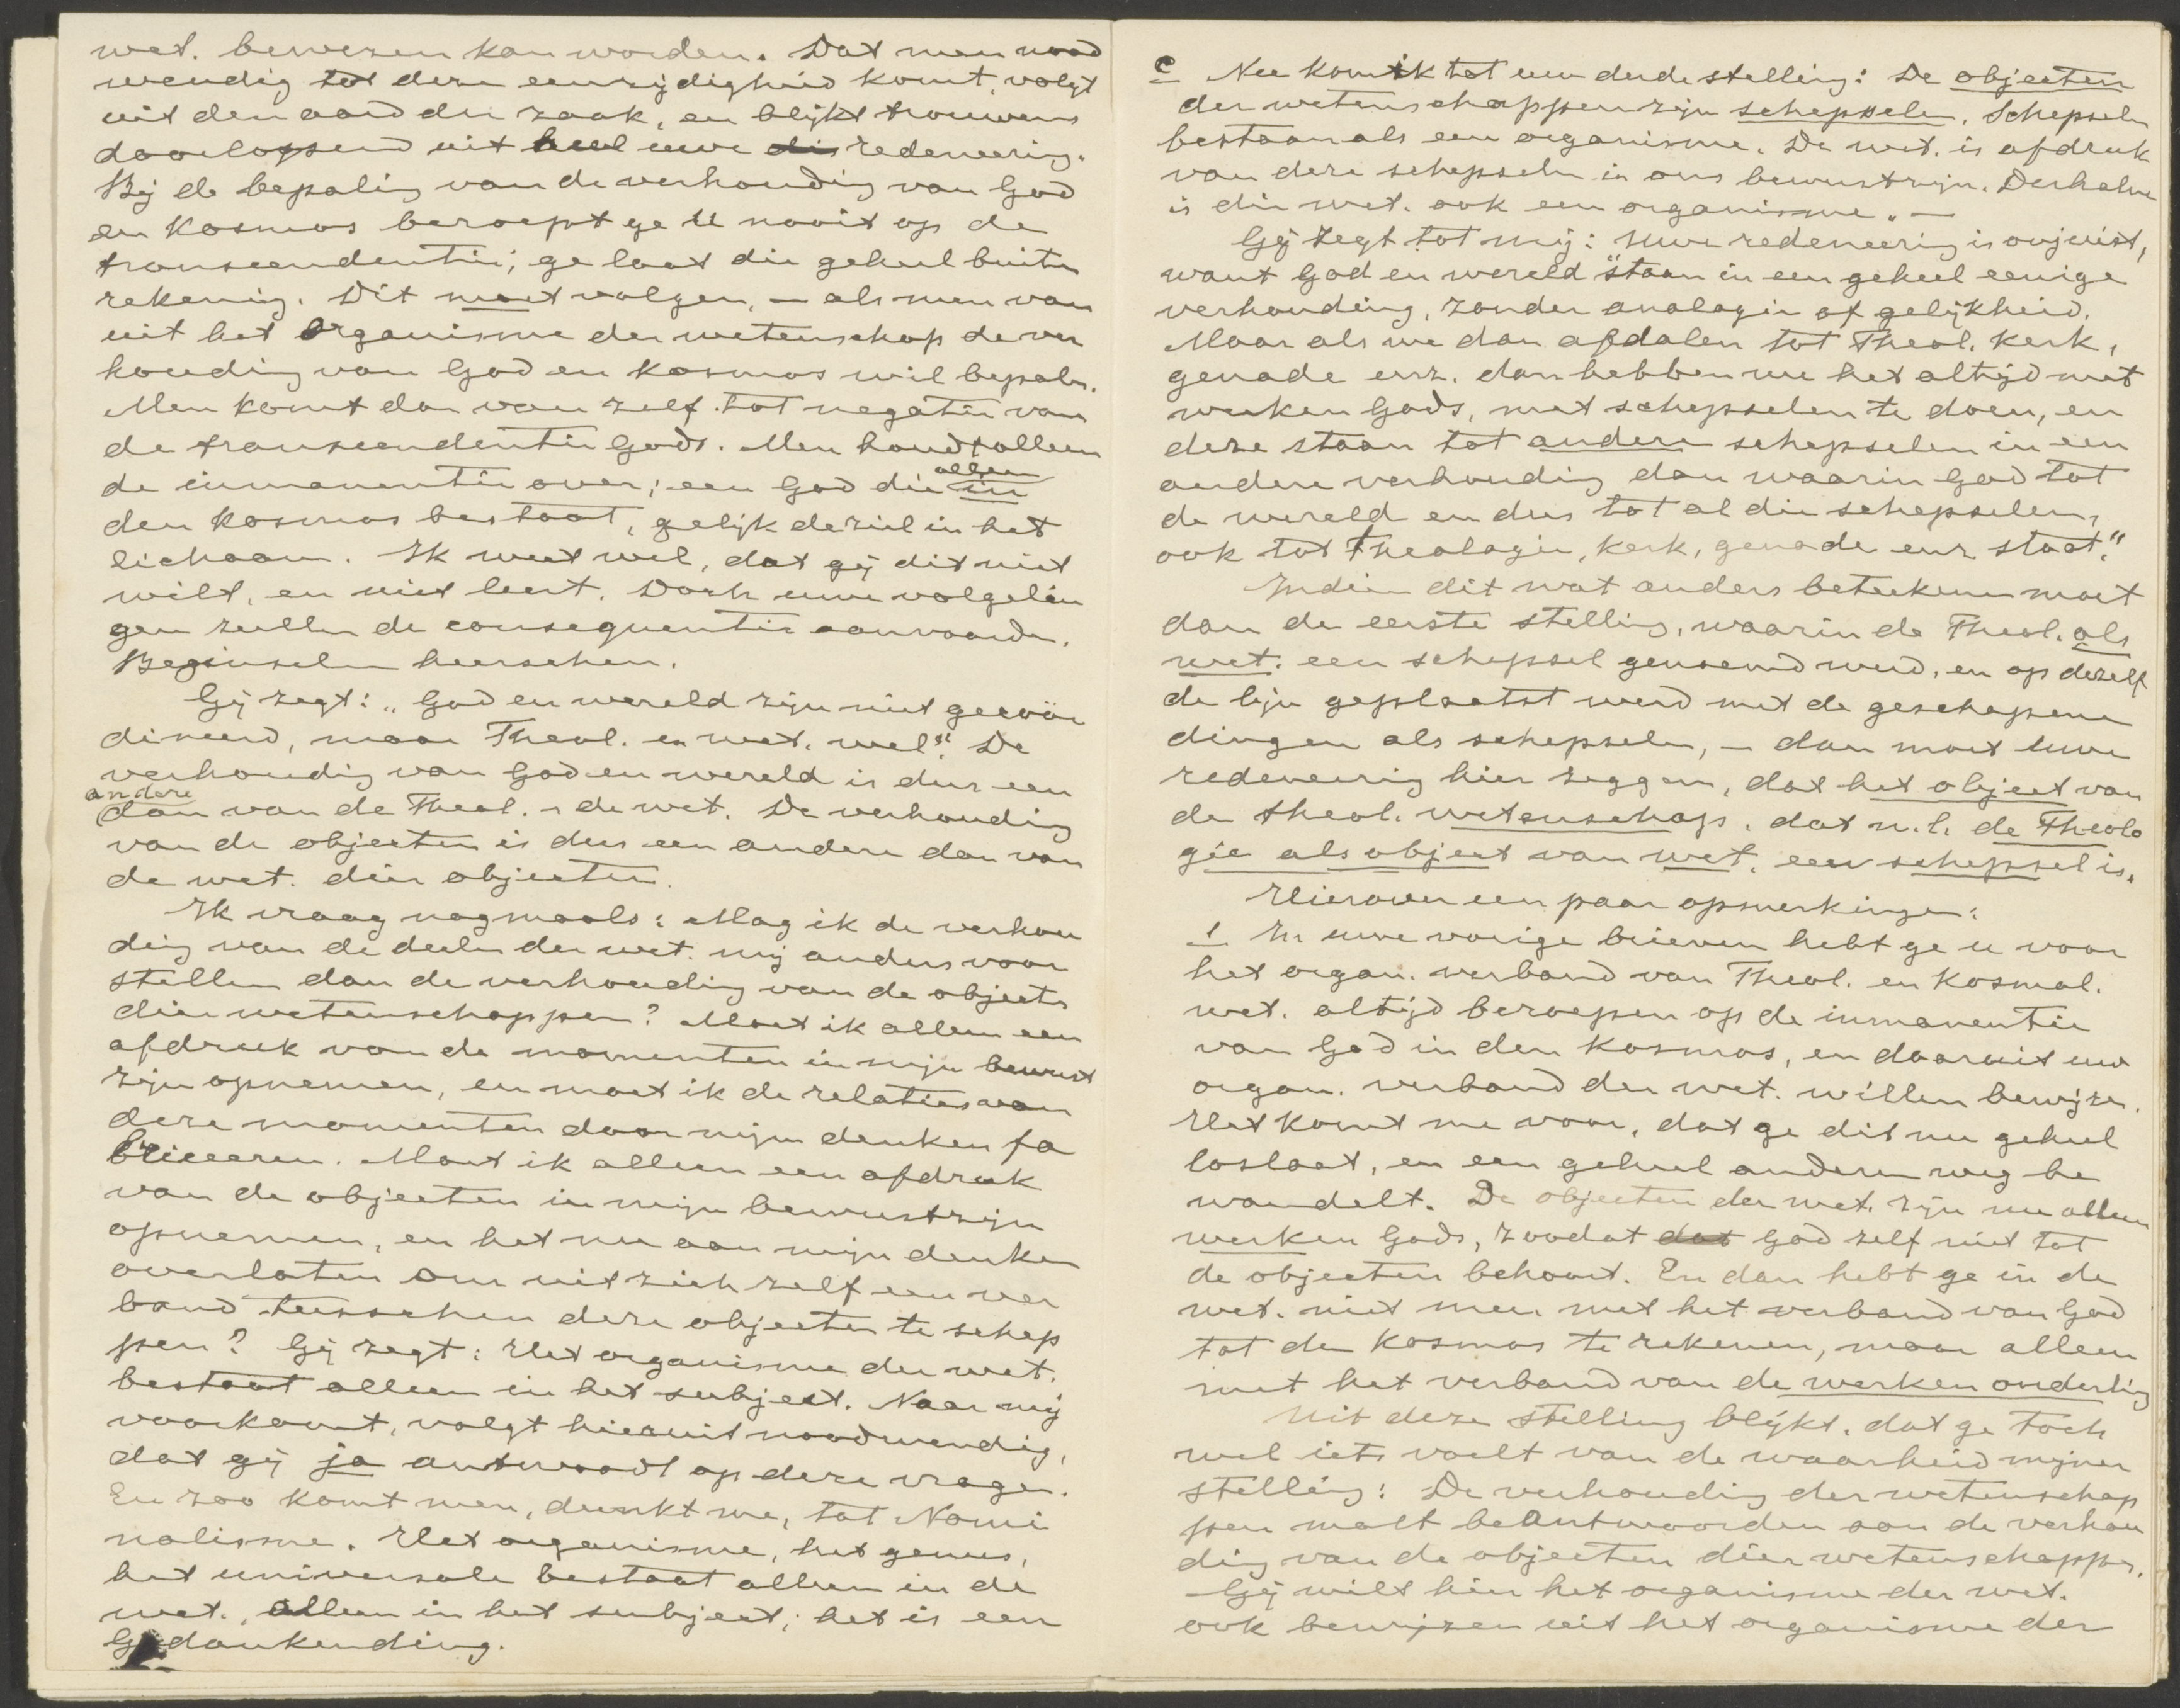 wet. bewezen kan worden. Dat men nood
wendig tot deze eenzijdigheid komt, volgt
uit den aard der zaak, en blijkt trouwens
doorlopend uit heel uwe redeneering.
Bij de bepaling van de verhouding van God
en Kosmos beroept ge U nooit op de
transcendentie; ge laat die geheel buiten
rekening. Dit moet volgen, – als men van
uit het Organisme der wetenschap de ver
houding van God en Kosmos wil bepalen.
Men komt dan van zelf tot negatie van
de transcendentie Gods. Men houdt alleen
de immanentie over; een God die alleen in
den Kosmos bestaat, gelijk de ziel in het
lichaam. Ik weet wel, dat gij dit niet
wilt, en niet leert. Doch uwe volgelin
gen zullen de consequentie aanvaarden.
Beginselen heerschen.
Gij zegt: „God en wereld zijn niet gecoör
dineerd, maar Theol. en wet. wel". De
verhouding van God en wereld is dus een
andere
dan van de Theol. & de wet. De verhouding
van de objecten is dus een andere dan van
de wet. dier objecten.
Ik vraag nogmaals: Mag ik de verhou
ding van de deelen der wet. mij anders voor
stellen dan de verhouding van de objecten
dier wetenschappen? Moet ik alleen een
afdruk van de momenten in mijn bewust
zijn opnemen, en moet ik de relaties van
deze momenten door mijn denken fa
briceeren. Moet ik alleen een afdruk
van de objecten in mijn bewustzijn
opnemen, en het nu aan mijn denken
overlaten om uit zich zelf een ver
band tusschen deze objecten te schep
pen? Gij zegt: Het organisme der wet.
bestaat alleen in het subject. Naar mij
voorkomt, volgt hieruit noodwendig,
dat gij ja antwoordt op deze vragen.
En zoo komt men, dunkt me, tot Nomi
nalisme. Het organisme, het genus,
het universale bestaat alleen in de
wet., alleen in het subject; het is een
Gedankending.
c Nu kom ik tot uw derde stelling: De objecten
der wetenschappen zijn schepselen. Schepselen
bestaan als een organisme. De wet. is afdruk
van deze schepselen in ons bewustzijn. Derhalve
is die wet. ook een organisme. –
Gij zegt tot mij: Uwe redeneering is onjuist,
want God en wereld "staan in een geheel eenige
verhouding, zonder analogie of gelijkheid.
Maar als we dan afdalen tot Theol. Kerk,
genade enz. dan hebben we het altijd met
werken Gods, met schepselen te doen, en
deze staan tot andere schepselen in een
andere verhouding dan waarin God tot
de wereld en dus tot al die schepselen,
ook tot Theologie, Kerk, genade enz. staat."
Indien dit wat anders beteekenen moet
dan de eerste stelling, waarin de Theol. als
wet. een schepsel genoemd werd, en op dezelf
de lijn geplaatst werd met de geschapene
dingen als schepselen, – dan moet Uwe
redeneering hier zeggen, dat het object van
de theol. wetenschap, dat n.l. de Theolo
gie als object van wet. een schepsel is.
Hierover een paar opmerkingen:
1 In uwe vorige brieven hebt ge u voor
het organ. verband van Theol. en Kosmol.
wet. altijd beroepen op de immanentie
van God in den Kosmos, en daaruit uw
organ. verband der wet. willen bewijzen.
Het komt me voor, dat ge dit nu geheel
loslaat, en een geheel anderen weg be
wandelt. De objecten der wet. zijn nu alleen
werken Gods, zoodat dat God zelf niet tot
de objecten behoort. En dan hebt ge in de
wet. niet meer met het verband van God
tot den Kosmos te rekenen, maar alleen
met het verband van de werken onderling
Uit deze stelling blijkt, dat ge toch
wel iets voelt van de waarheid mijner
stelling: De verhouding der wetenschap
pen moet beantwoorden aan de verhou
ding van de objecten dier wetenschappen.
Gij wilt hier het organisme der wet.
ook bewijzen uit het organisme der